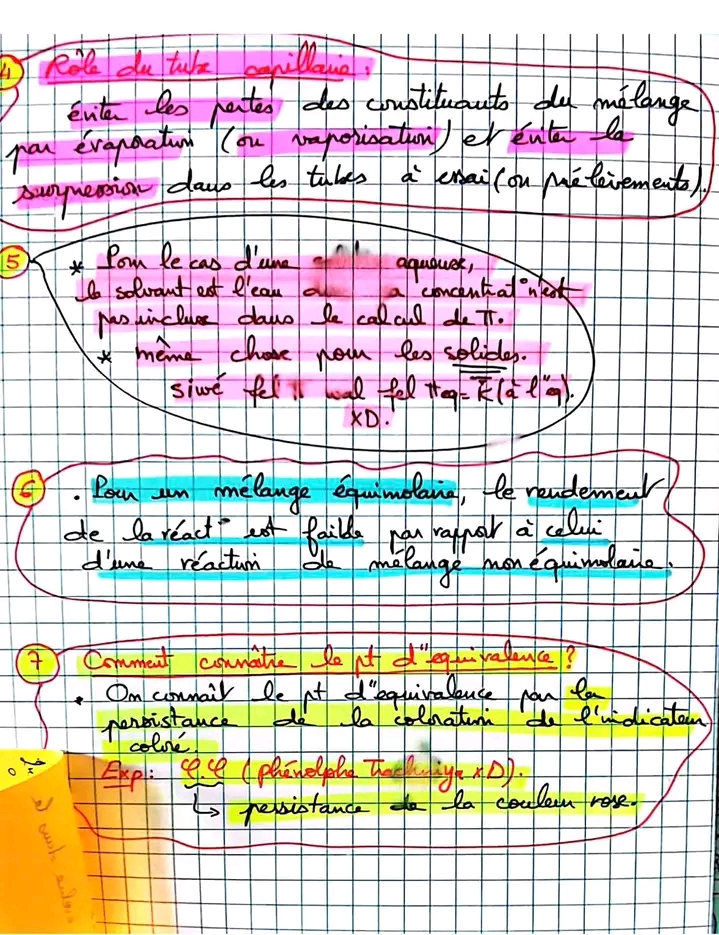 4 Rôle du tube capillaire :
éviter les pertes des constituants du mélange
par évaporation (ou vaporisation) et éviter la
surpression dans les tubes à essai (ou prélèvements).
5 * Pour le cas d'une aqueuse,
le solvant est l'eau a concentrat° n'est
pas incluse dans le calcul de π.
* même chose pour les solides.
siwé fel π wal fel πeq = K (à l'"eq).
XD.
6 . Pour un mélange équimolaire, le rendement
de la réact° est faible par rapport à celui
d'une réaction de mélange non équimolaire.
7 Comment connaître le pt d'"equivalence ?
. On connaît le pt d'"equivalence par la
persistance de la coloration de l'indicateur
coloré.
Exp : φ.φ (phénolphe Trachniya XD).
↳ persistance de la couleur rose.